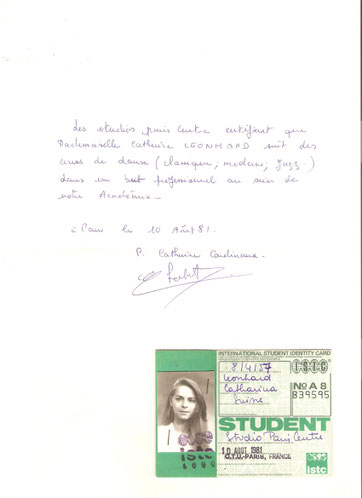 Les studios paris Centre certifient que
Mademoiselle Catherine LEONHARD suit des
cours de danse (classique; moderne; jazz.)
dans un but professionnel au sein de
notre Académie.
à Paris le 10 Août 81.
P. Catherine
INTERNATIONAL STUDENT IDENTITY CARD
8/4/57
Leonhard
Catharina
Suisse
ISIC
No A 8
839595
STUDENT
Studio Paris Centre
10 AOUT 1981
O.T.U. PARIS, FRANCE
istc
istc